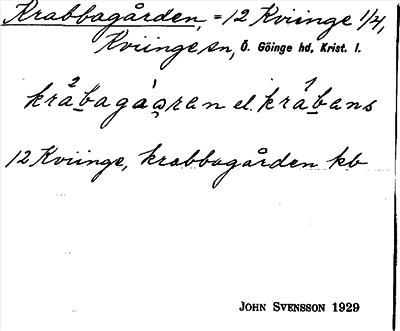 Krabbagården, = 12 Kviinge 1/4,
Kviinge sn, Ö. Göinge hd, Krist. l.
kràbagåran el. krábans
12 Kviinge, krabbagården kb
JOHN SVENSSON 1929